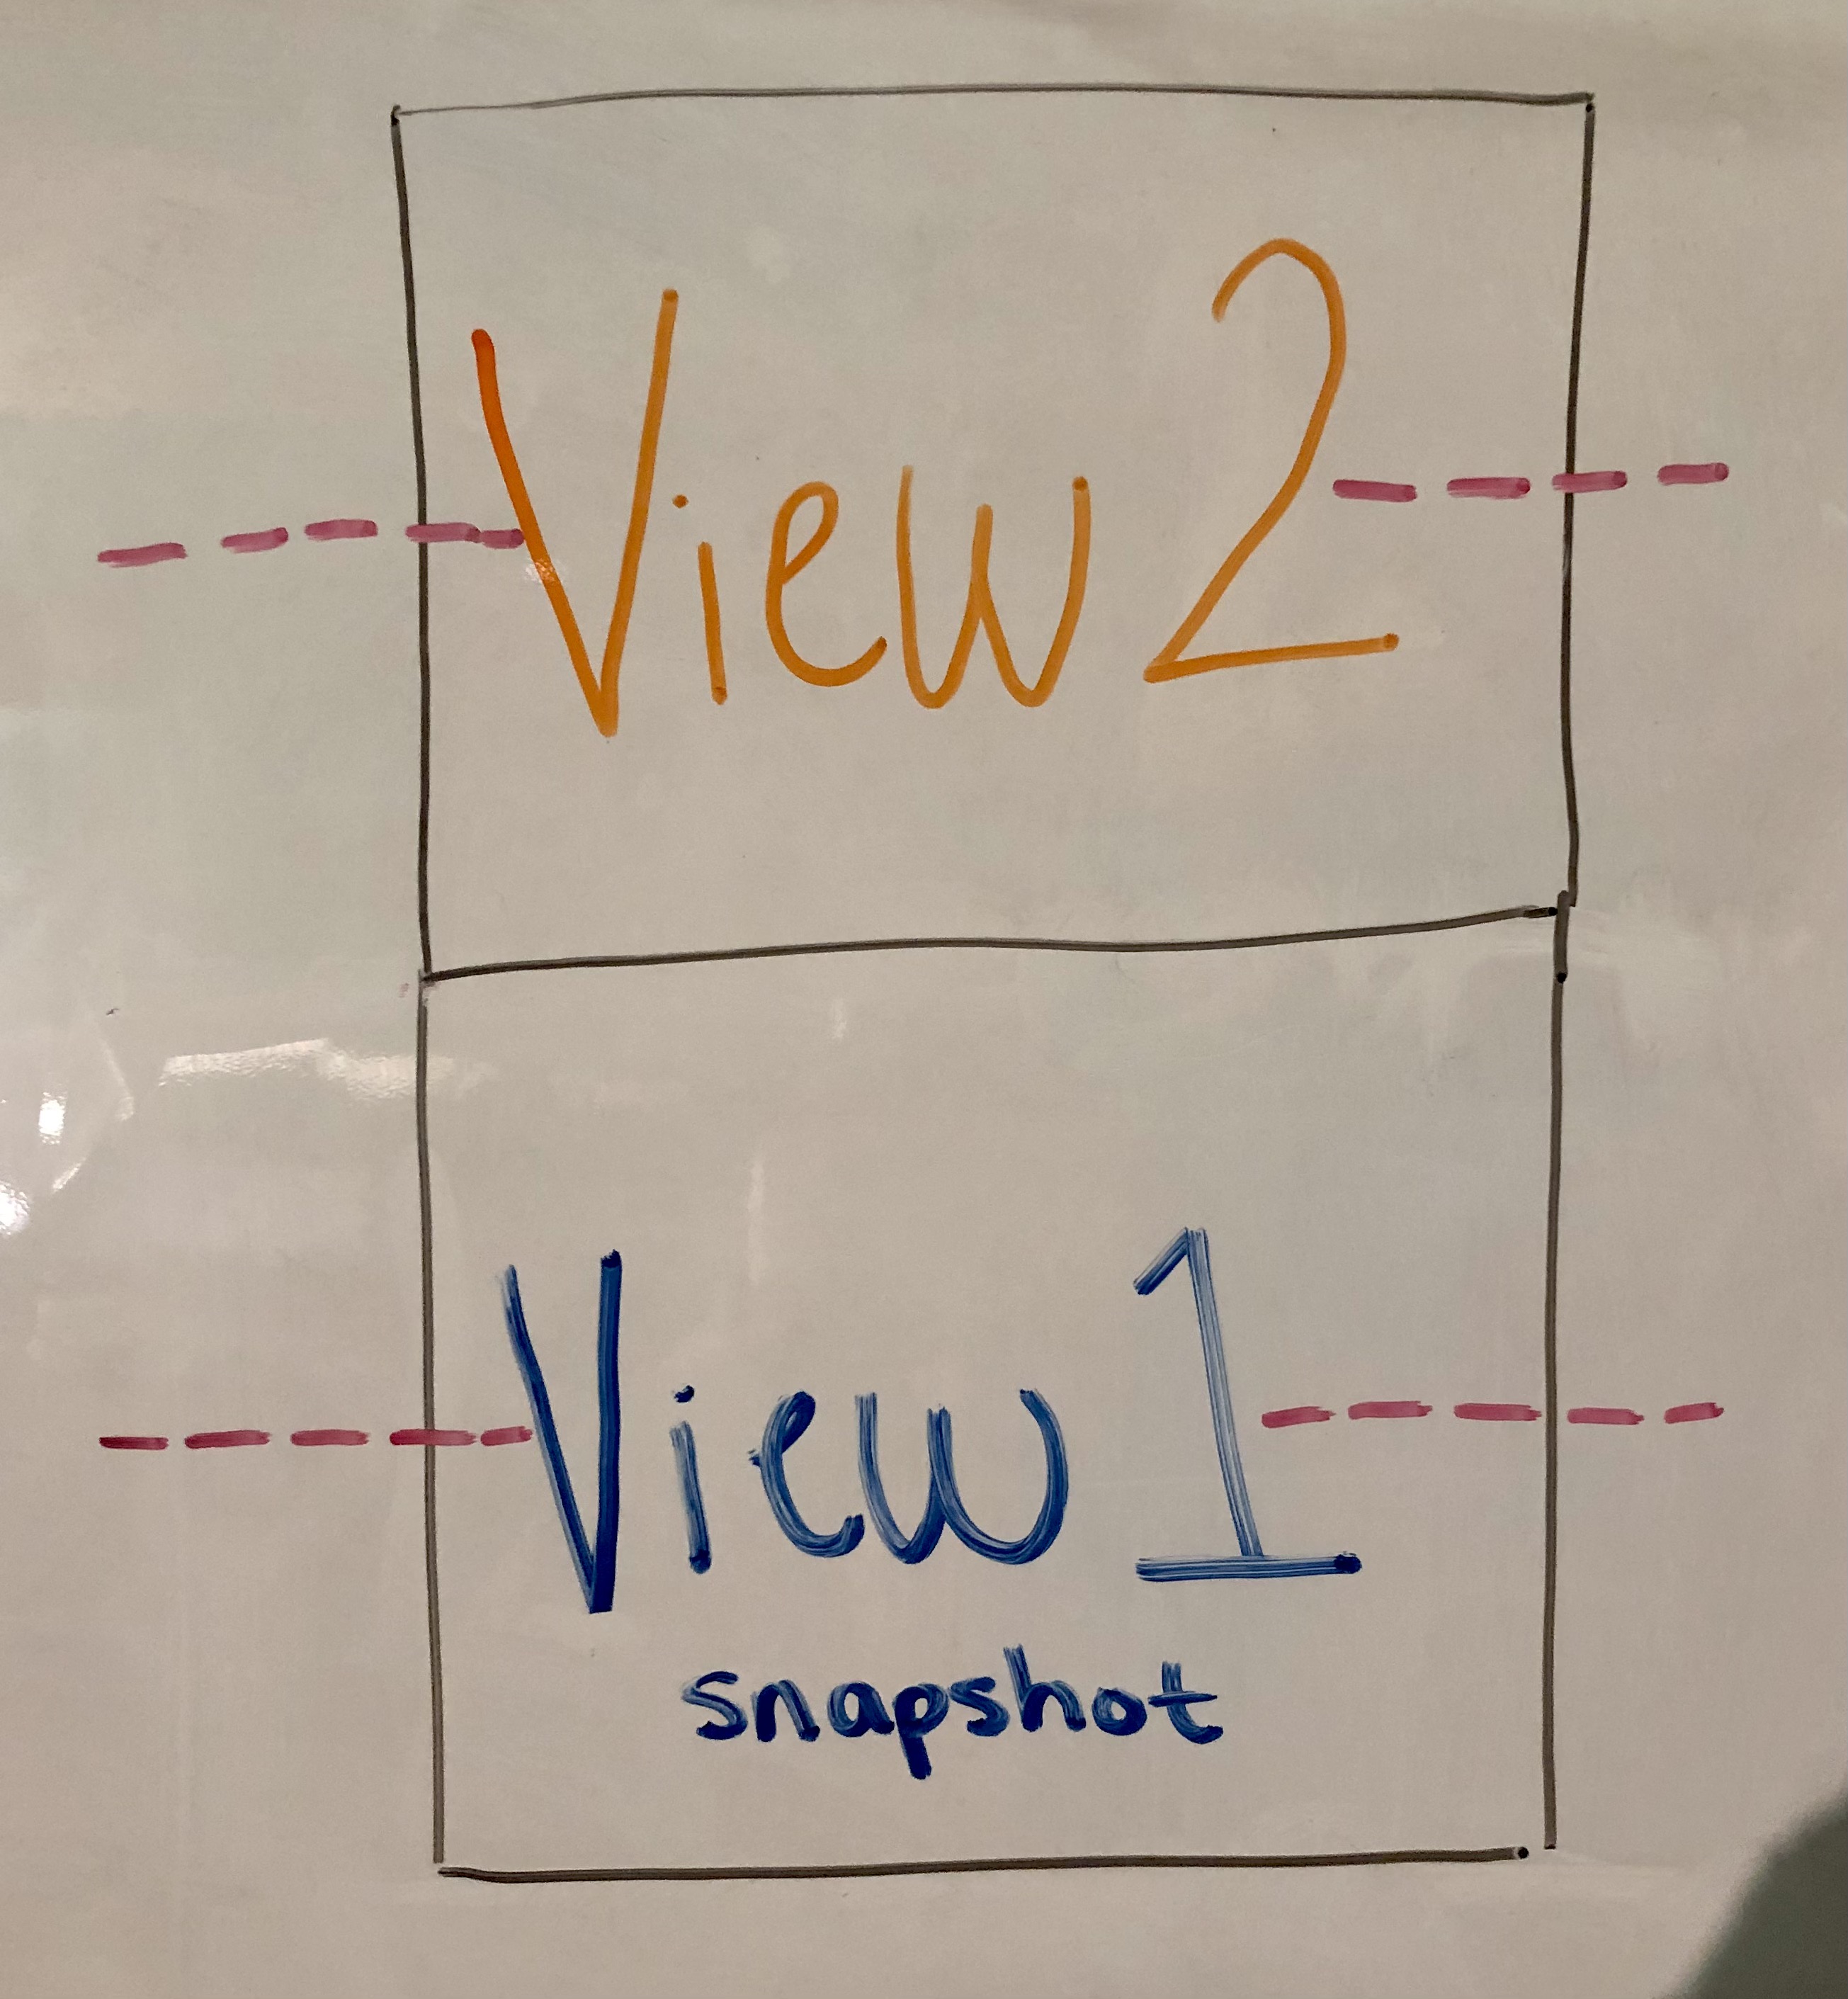 View 2
View 1
snapshot